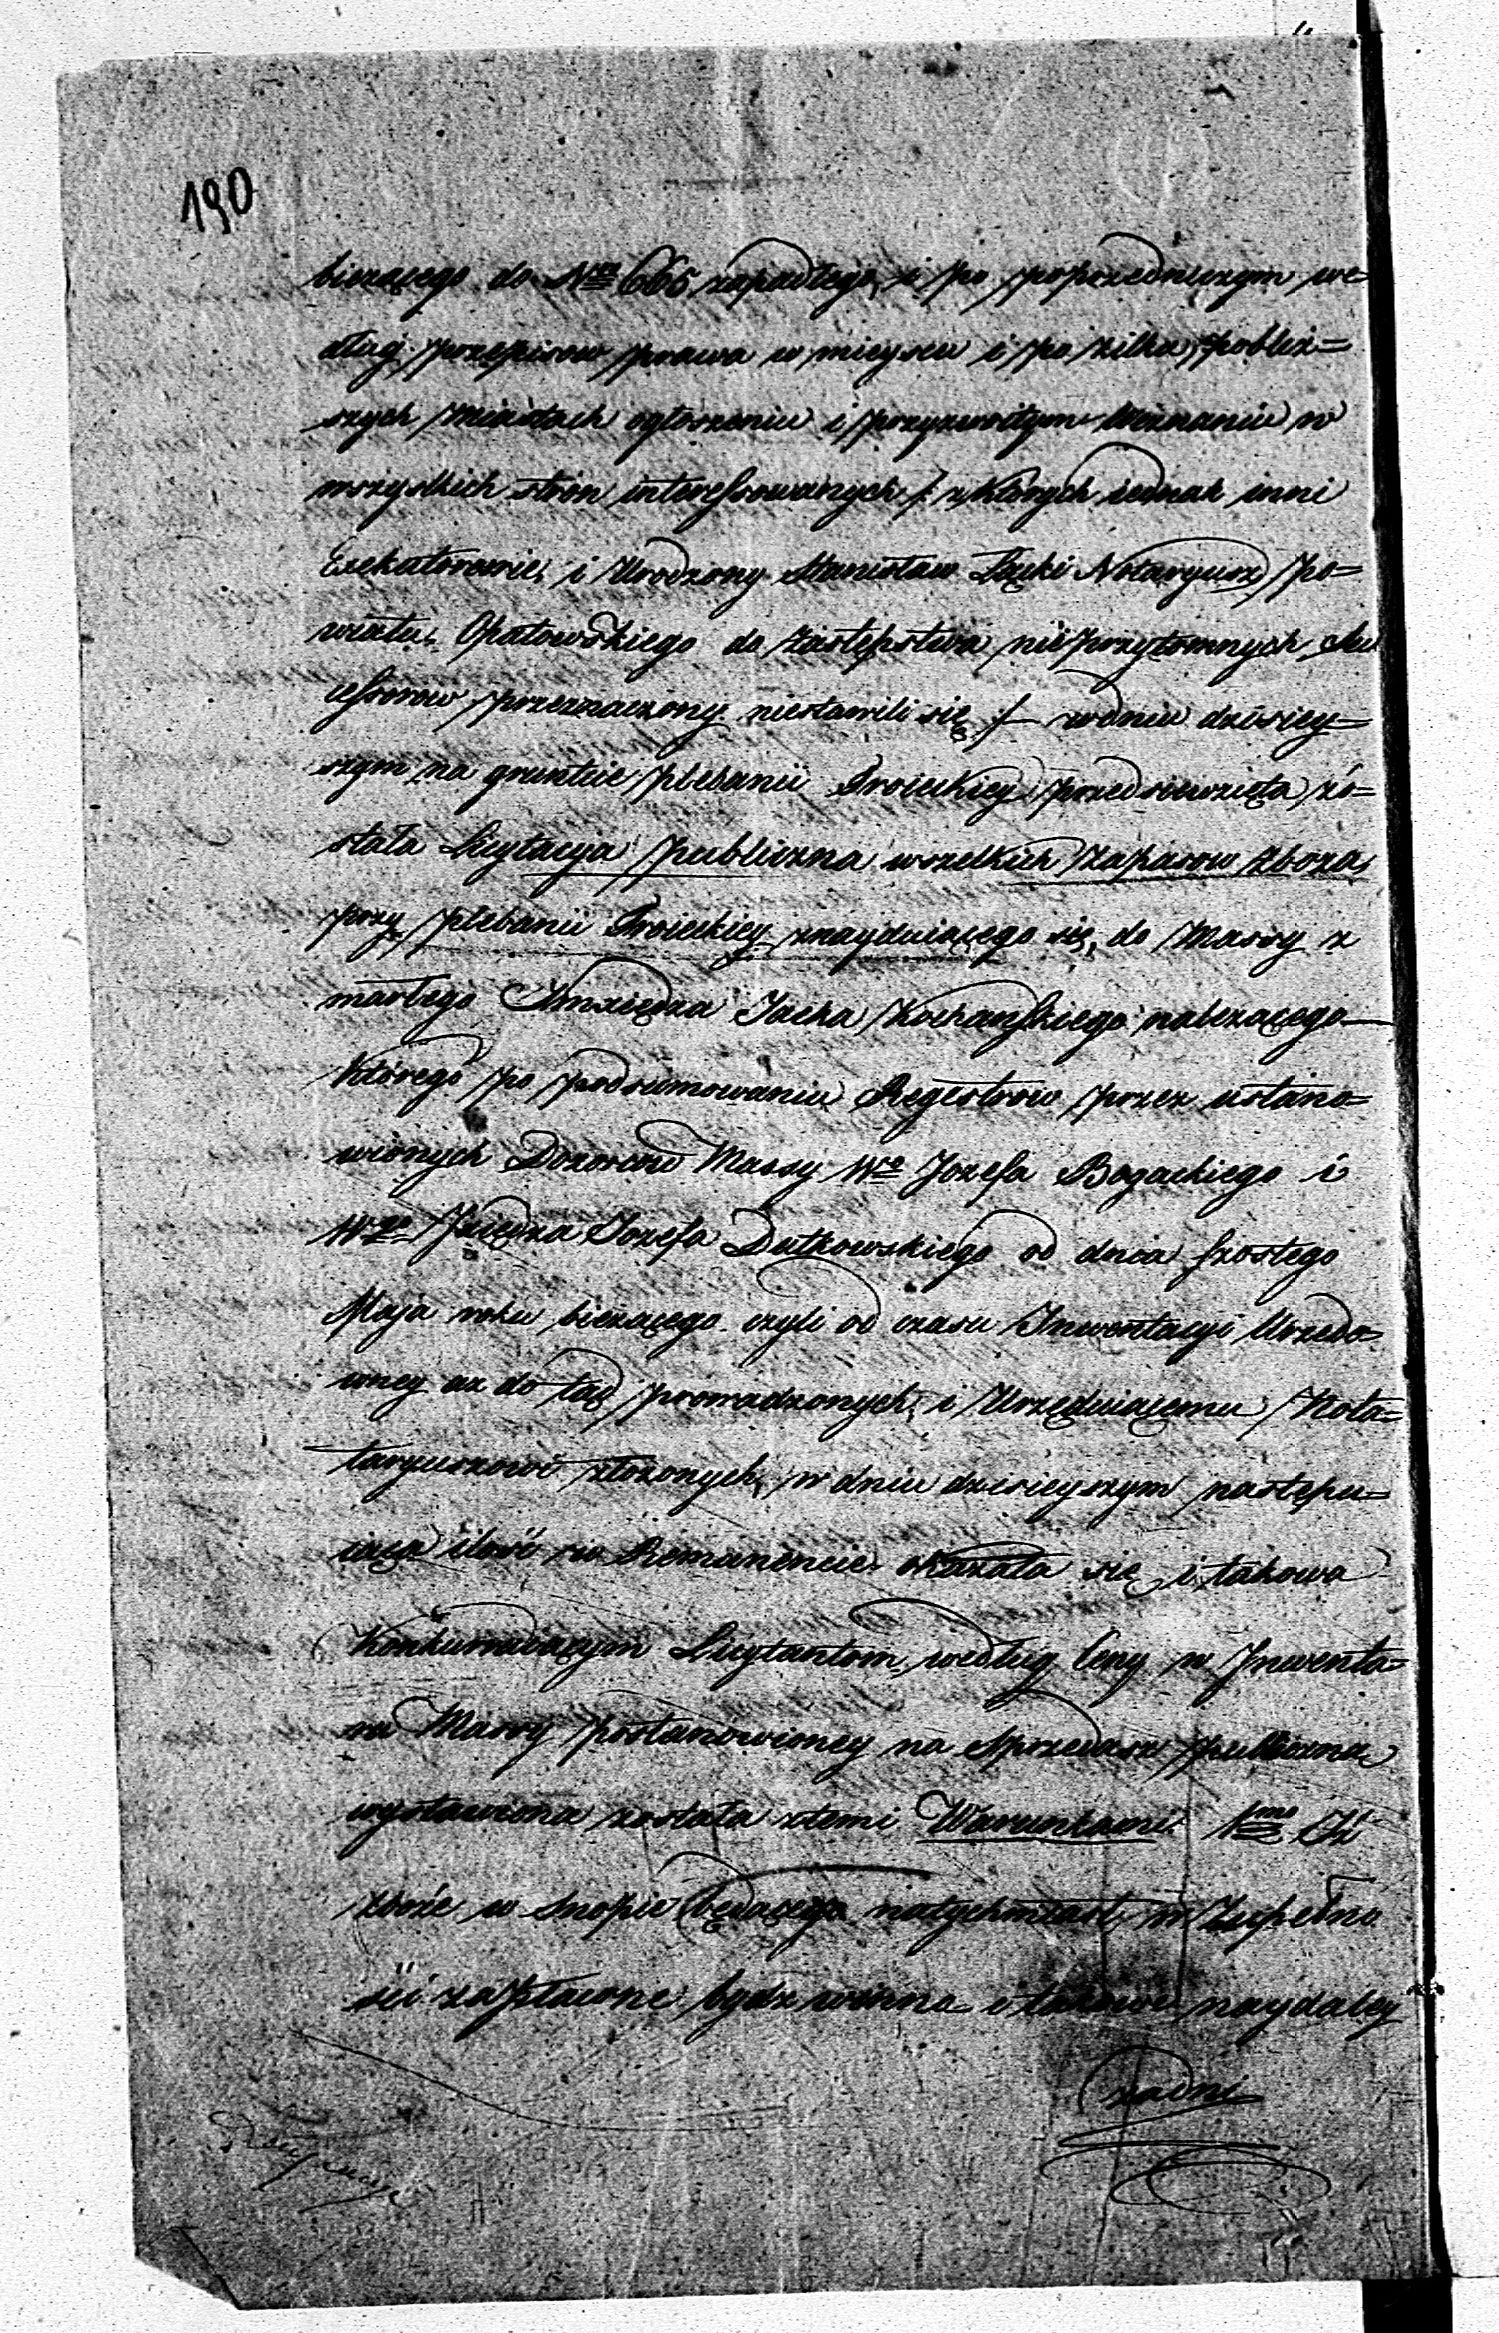 190
bieżącego do Nro 666 zapadłego, i po poprzedniczym we-
dług przepisow prawa w mieyscu i po kilku pobliż=
szych Miastach ogłoszeniu i przyzwoitym Wezwaniu w
wszystkich stron interessowanych /: z których iednak inni
Exekutorowie, i Urodzony Stanisław Łącki Notaryusz Po=
wiatu Opatowskiego do zastępstwa nieprzytomnych Suk
cessorow przeznaczony niestawili się :/ w dniu dzisiey=
szym na gruncie plebanii Troieckiey przedsięwzięta zo=
stała Licytacya publiczna wszelkich zapasow zboża,
przy plebanii Troieckiey znayduiącego się, do Massy z
marłego Xiędza Jacka Kochańskiego należącego
którego po podsumowaniu Regestrow przez ustano=
wionych Dozorcow Massy Wgo Jozefa Bogackiego i
Wgo Xiędza Jozefa Dutkowskiego od dnia szostego
Maja roku bieżącego czyli od czasu Inwentacyi Urzędo=
wney aż do tąd prowadzonych, i Urzęduiącemu Nota=
taryuszowi złożonych, w dniu dzisieyszym następu=
iąca ilość w Remanencie okazała się, i takowa
Konkurruiącym Licytantom według Ceny w Inwenta=
rzu Massy postanowioney na sprzedasz publiczną
wystawiona została z temi Warunkami 1mo Iż
zboże w snopie będące natychmiast w Zupełno
ści zapłacone bydź winno i takowe naydaley
za dni